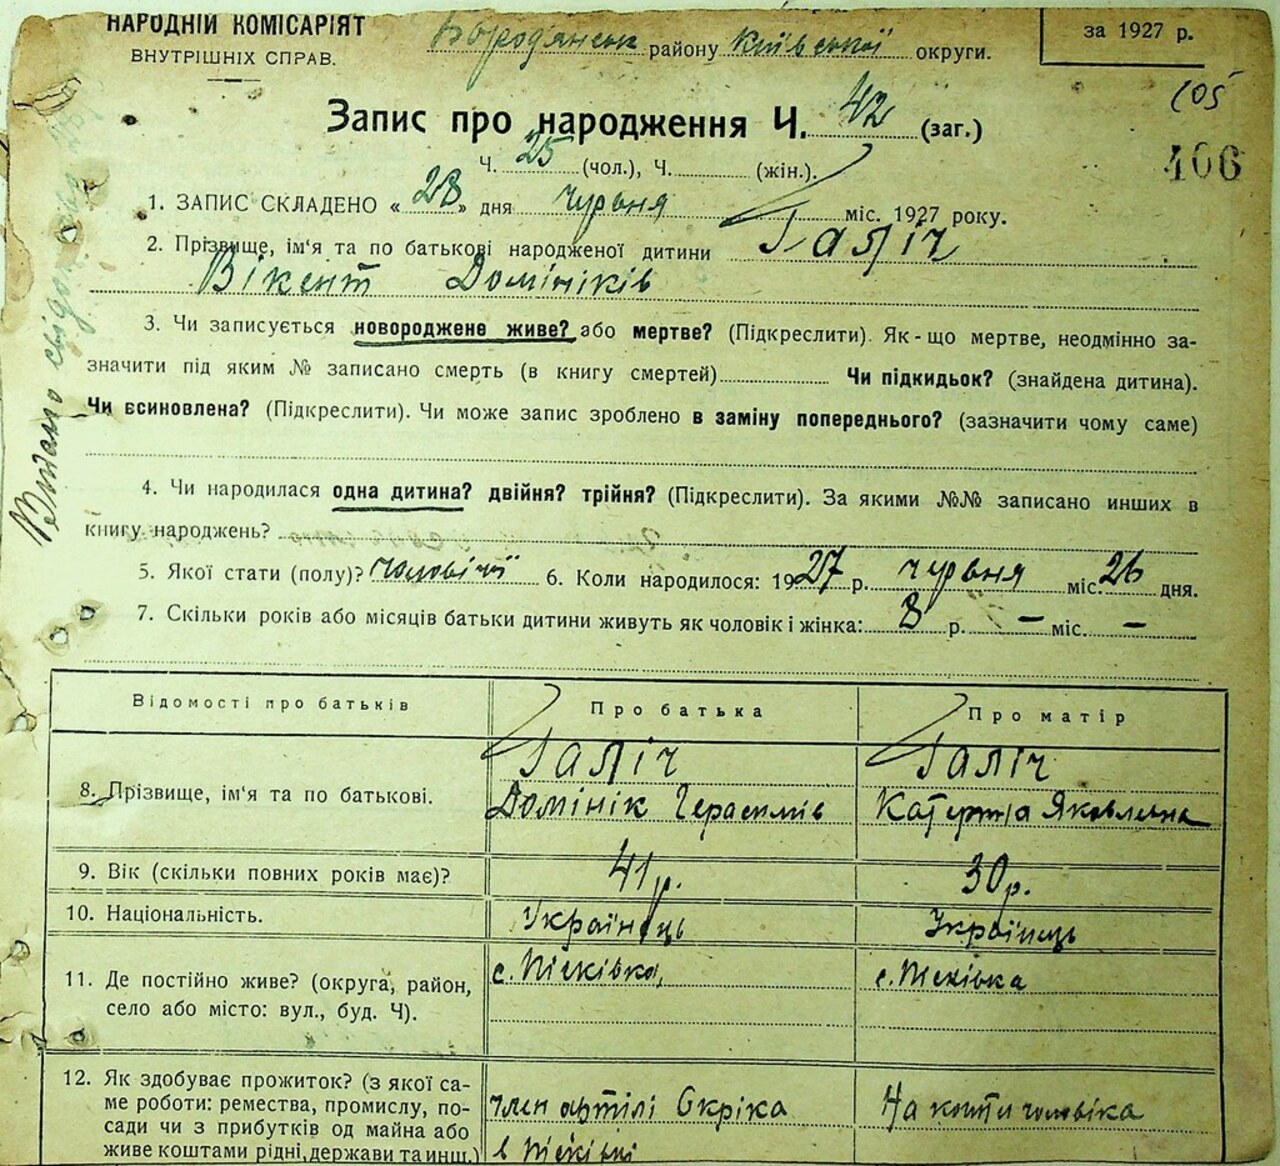 НАРОДНІЙ КОМІСАРІЯТ
ВНУТРІШНІХ СПРАВ.
Бородянськ району Київської округи.
за 1927 р.
105
406
Запис про народження Ч. 42 (заг.)
Ч. 25 (чол.), Ч. (жін.).
1. ЗАПИС СКЛАДЕНО « 28 » дня червня міс. 1927 року.
2. Прізвище, ім'я та по батькові народженої дитини Галіч
Вікент Домініків
3. Чи записується новороджене живе? або мертве? (Підкреслити). Як-що мертве, неодмінно за-
значити під яким № записано смерть (в книгу смертей) Чи підкидьок? (знайдена дитина).
Чи всиновлена? (Підкреслити). Чи може запис зроблено в заміну попереднього? (зазначити чому саме)
4. Чи народилася одна дитина? двійня? трійня? (Підкреслити). За якими №№ записано инших в
книгу народжень?
5. Якої стати (полу)? чоловічої 6. Коли народилося: 1927 р. червня міс. 26 дня.
7. Скільки років або місяців батьки дитини живуть як чоловік і жінка: 8 р. — міс. —
Відомості про батьків Про батька Про матір
8. Прізвище, ім'я та по батькові. Галіч Галіч
Домінік Герасимів Катерина Яковлевна
9. Вік (скільки повних років має)? 41 р. 30 р.
10. Національність. Українець Українець
11. Де постійно живе? (округа, район, с. Пісківка, с. Пісківка
село або місто: вул., буд. Ч).
12. Як здобуває прожиток? (з якої са-
ме роботи: ремества, промислу, по- член артілі На кошти чоловіка
сади чи з прибутків од майна або
живе коштами рідні, держави та инш.) в Пісківці
Видано